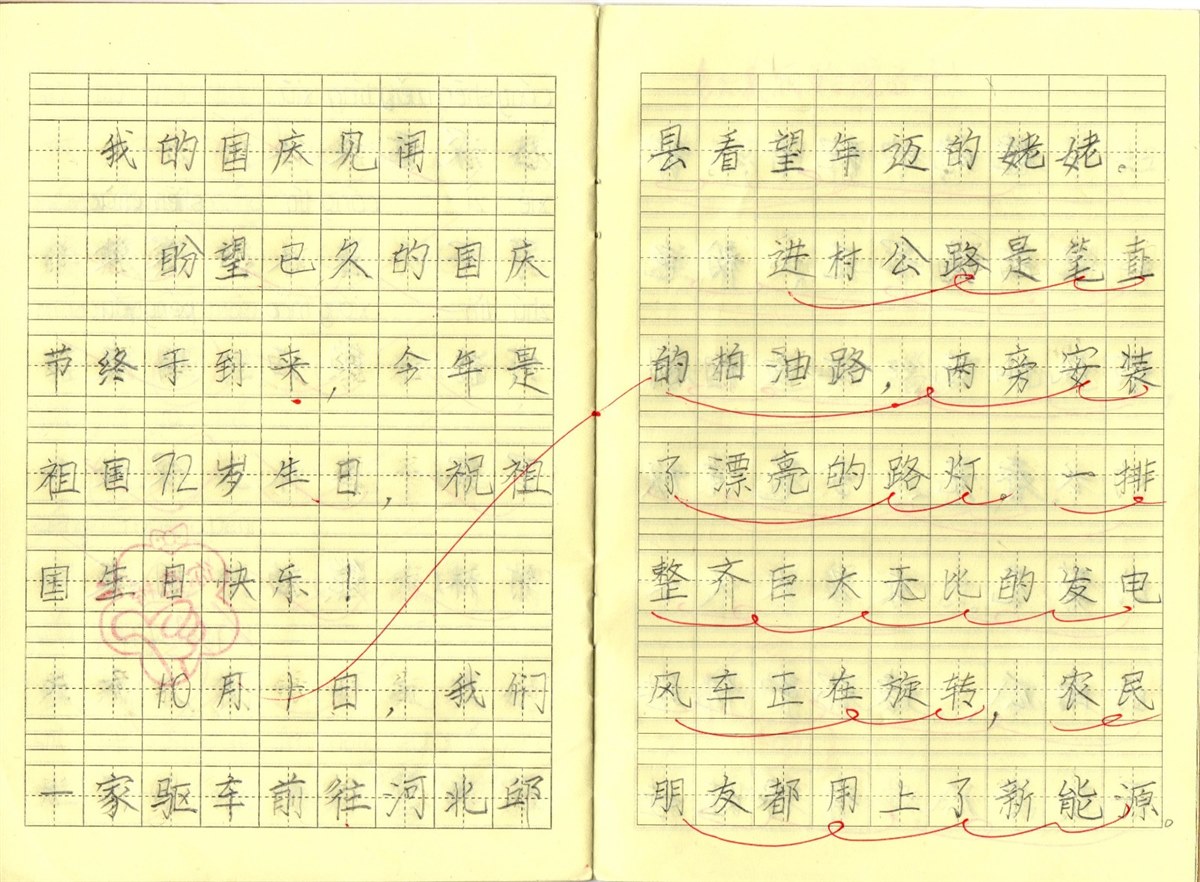 我的国庆见闻
盼望已久的国庆
节终于到来，今年是
祖国72岁生日，祝祖
国生日快乐！
10月1日，我们
一家驱车前往河北邱
县看望年迈的姥姥。
进村公路是笔直
的柏油路，两旁安装
了漂亮的路灯。一排
整齐巨大无比的发电
风车正在旋转，农民
朋友都用上了新能源。